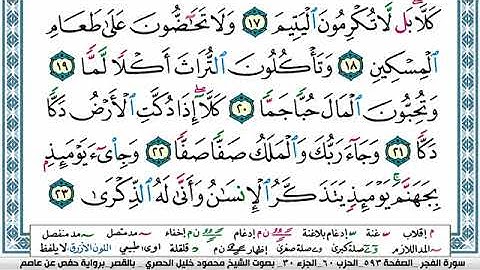 كَلَّا ۖ بَل لَّا تُكْرِمُونَ الْيَتِيمَ ﴿١٧﴾ وَلَا تَحَاضُّونَ عَلَىٰ طَعَامِ
الْمِسْكِينِ ﴿١٨﴾ وَتَأْكُلُونَ التُّرَاثَ أَكْلًا لَّمًّا ﴿١٩﴾
وَتُحِبُّونَ الْمَالَ حُبًّا جَمًّا ﴿٢٠﴾ كَلَّا ۖ إِذَا دُكَّتِ الْأَرْضُ دَكًّا
دَكًّا ﴿٢١﴾ وَجَاءَ رَبُّكَ وَالْمَلَكُ صَفًّا صَفًّا ﴿٢٢﴾ وَجِايءَ يَوْمَئِذٍ
بِجَهَنَّمَ ۚ يَوْمَئِذٍ يَتَذَكَّرُ الْإِنسَانُ وَأَنَّىٰ لَهُ الذِّكْرَىٰ ﴿٢٣﴾
م إقلاب غنة إدغام بلاغنة ن م إدغام ن م إخفاء مد متصل مد منفصل
مد اللازم صلة كبرى صلة صغرى إظهار ن م قلقلة اوى طبيعي اللون الأزرق لا يلفظ
سورة الفجر _ الصفحة ٥٩٣ _ الحزب ٦٠ _ الجزء ٣٠ _ بصوت الشيخ محمود خليل الحصري _ بالقصر _ برواية حفص عن عاصم